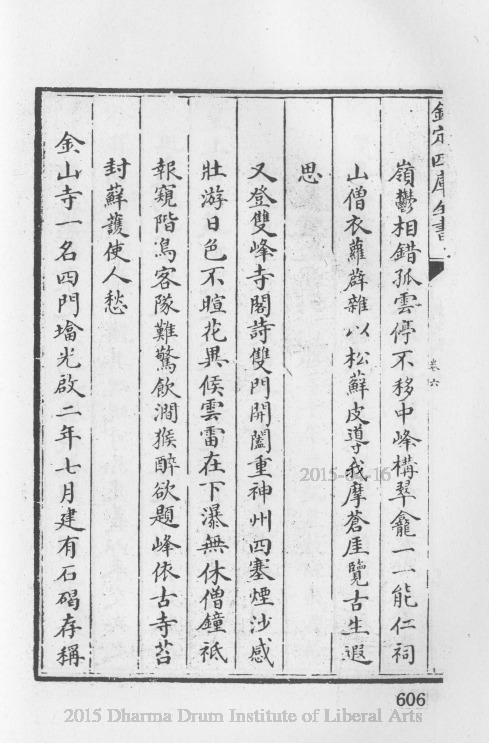 欽定四庫全書
卷六
嶺鬱相錯孤雲停不移中峰構翠龕一一能仁祠
山僧衣蘿薜雜以松蘇皮導我摩蒼崖覽古生遐
思
又登雙峰寺閣詩雙門開闔重神州四塞煙沙感
壯游日色不暄花異候雲雷在下瀑無休僧鐘祗
報窺階鳥客隊難驚飲澗猴醉欲題峰依古寺苔
封蘇護使人愁
金山寺一名四門墖光啟二年七月建有石碣存稱
606
2015-04-16
2015 Dharma Drum Institute of Liberal Arts